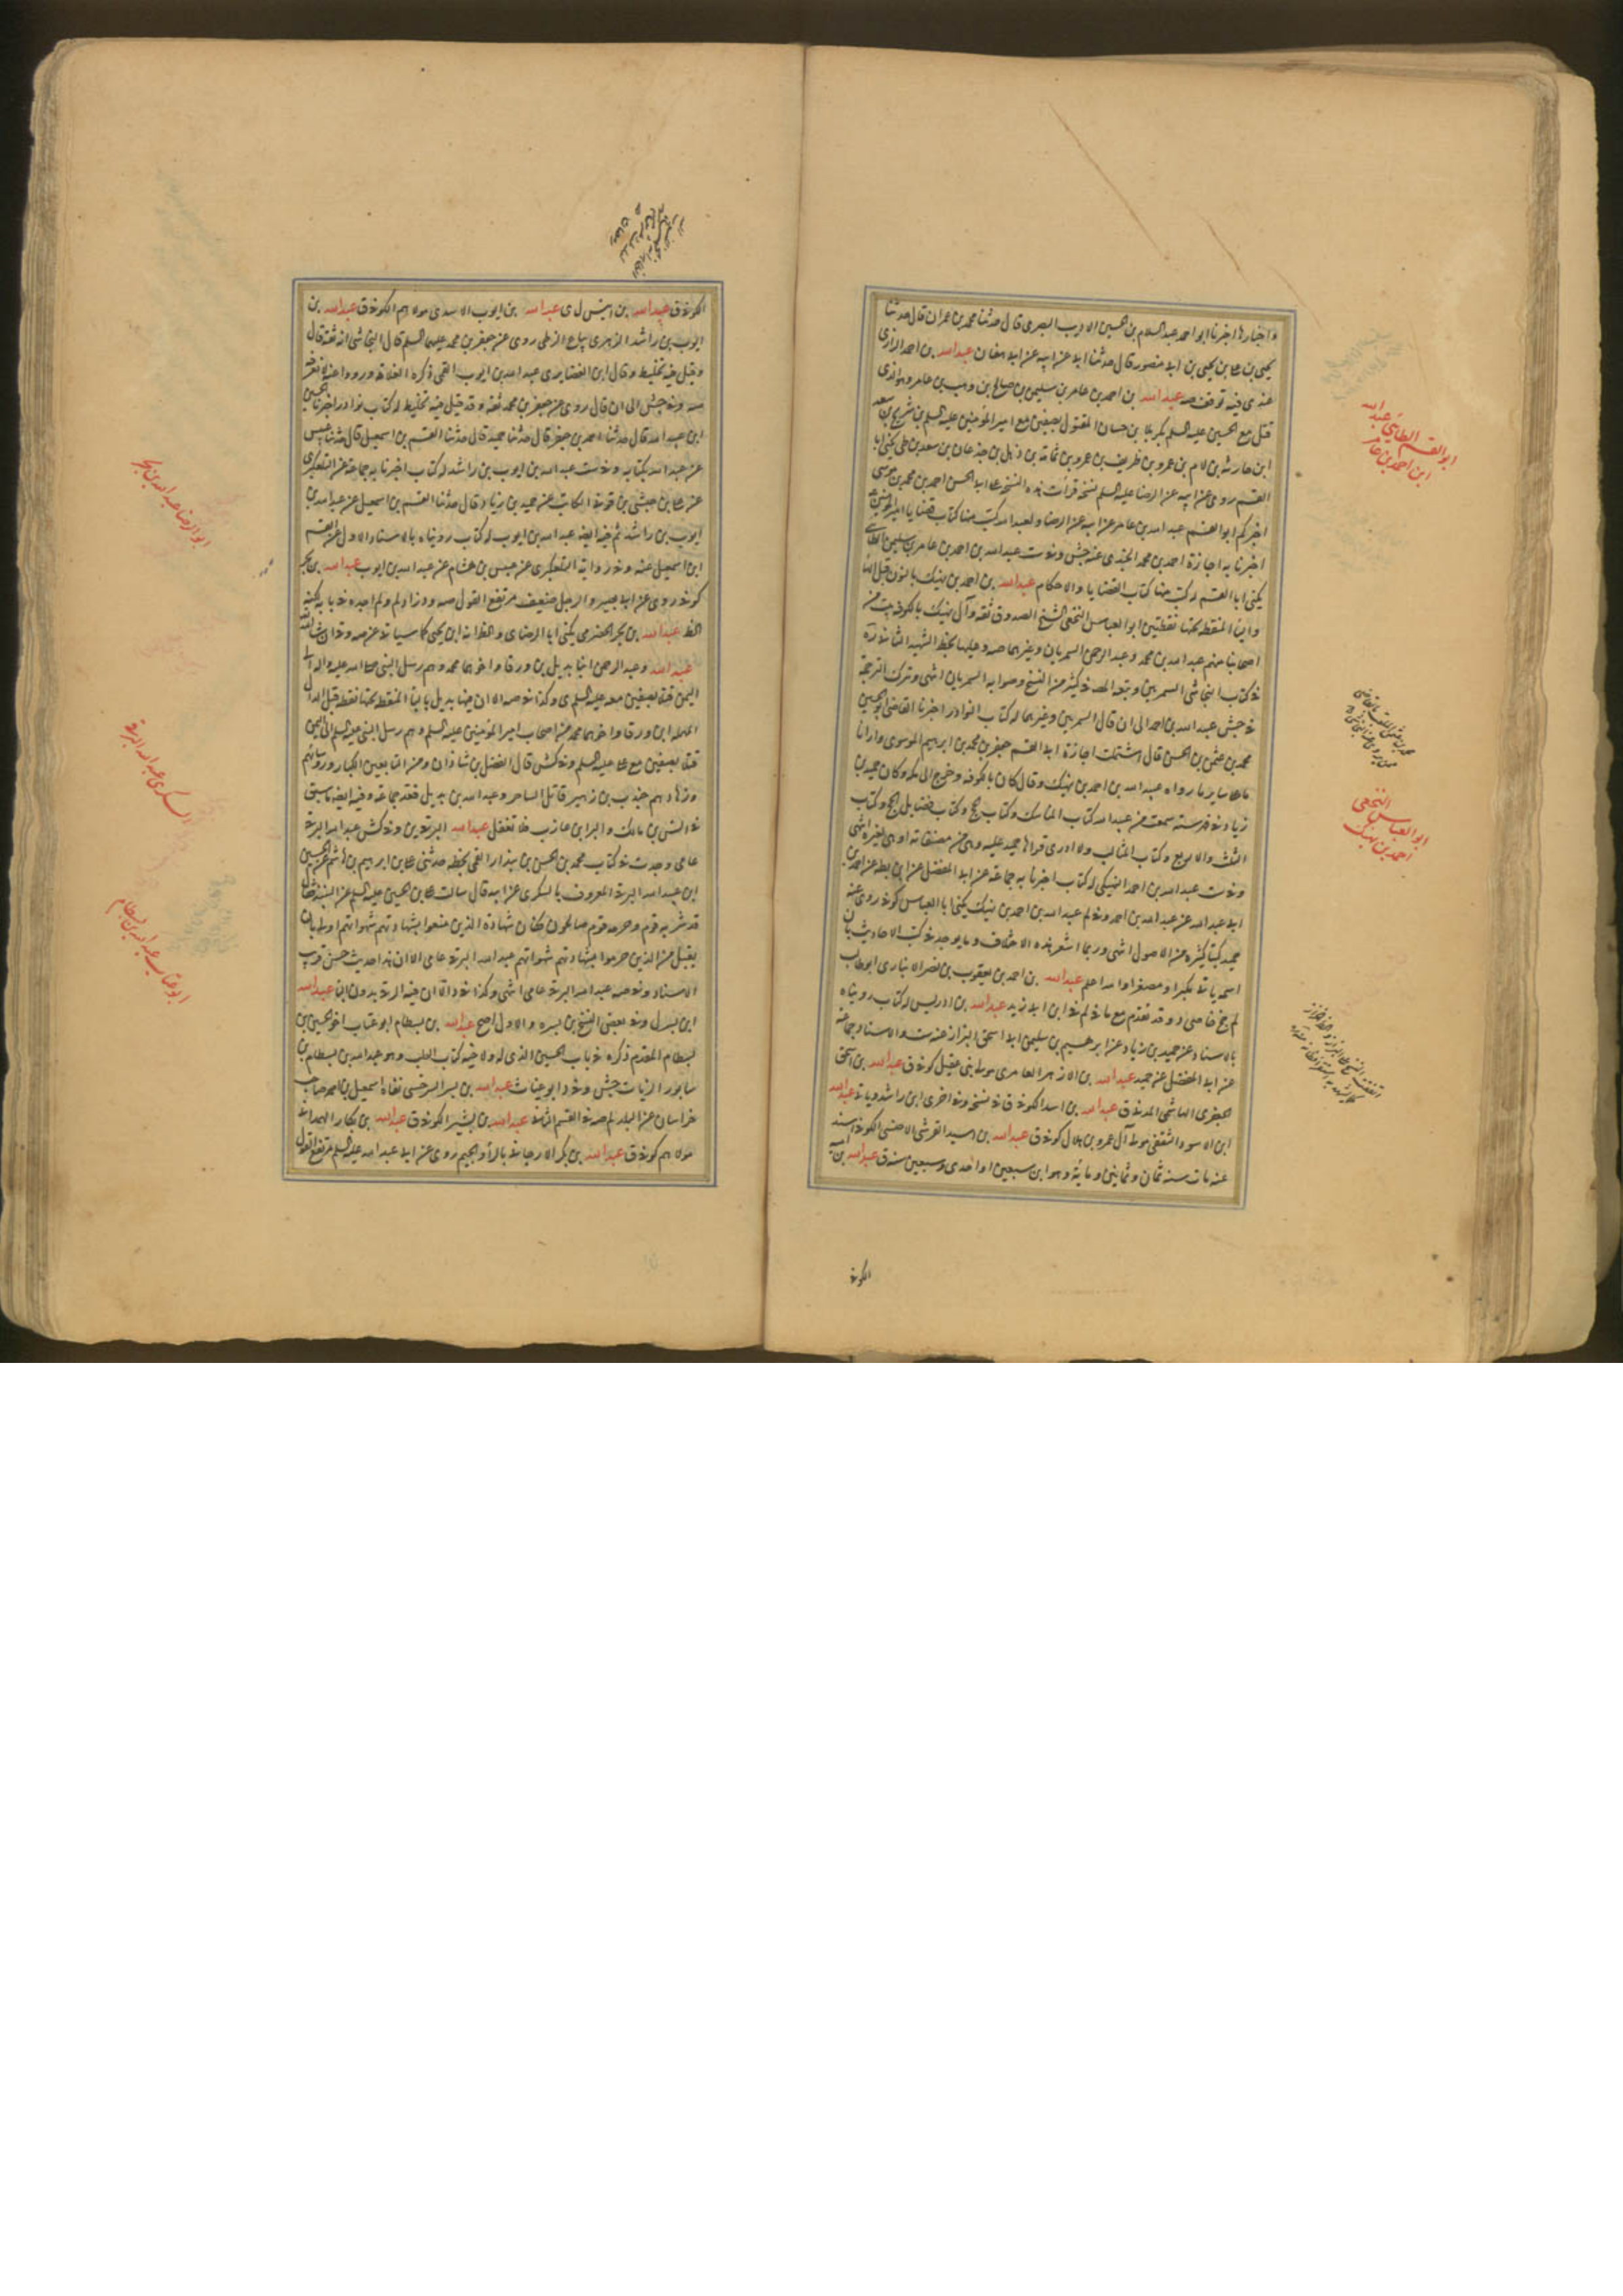 واخبارها اخبرنا ابو احمد عبد السلام بن الحسين الاديب البصرى قال حدثنا محمد بن عمران قال حدثنا
يحيى بن على بن يحيى بن ابى منصور قال حدثنا ابى عن ابيه عن ابى عبدالله بن احمد الرازى
عندى فيه توقف صه عبدالله بن احمد بن عامر بن سليمن بن صالح بن وهب بن عامر وهو الذى
قتل مع الحسين عليه السلم بكربلا بن حسان المقتول بصفين مع امير المؤمنين عليه السلم بن شريح بن سعد
ابن حارثة بن لام بن عمرو بن ظريف بن عمرو بن ثمامة بن ذهل بن جذعان بن سعد بن طى يكنى ابا
القسم روى عن ابيه عن الرضا عليه السلم نسخة قرأت هذه النسخة على ابى الحسن احمد بن محمد بن موسى
اخبركم ابو القسم عبد الله بن عامر عن ابيه عن الرضا ولعبد الله كتب منها كتاب قضايا امير المؤمنين
اخبرنا به اجازة احمد بن محمد الجندى عنه جش وفى ست عبد الله بن احمد بن عامر بن سليمن الطائى
يكنى ابا القسم له كتب منها كتاب القضايا والاحكام عبدالله بن احمد بن نهيك بالنون قبل الهاء
وايا المنقطة تحتها نقطتين ابو العباس النخعى الشيخ الصدوق ثقة وآل نهيك بالكوفة بيت من
اصحابنا منهم عبد الله بن محمد وعبد الرحمن السمريان وغيرهما صه وعليها بخط الشهيد الثانى
فى كتاب النجاشى السمريين وتبعه المصـ فى كثير من النسخ وصوابه السمريان انتهى وترك الترجمة
فى جش عبد الله بن احمد الى ان قال السمريين وغيرهما له كتاب النوادر اخبرنا القاضى ابو الحسين
محمد بن عثمن بن الحسن قال اشتملت اجازة ابى القسم جعفر بن محمد بن ابرهيم الموسوى وارانا
ما على ساير ما رواه عبد الله بن احمد بن نهيك وقال كان بالكوفة وخرج الى مكة وكان حميد بن
زياد فى فهرسته سمعت من عبد الله كتاب المناسك وكتاب حج وكتاب فضايل الحج وكتاب
الثلث والاربع وكتاب المثالب ولا ادرى قرأها حميد عليه وهى من مصنفاته او هى لغيره انتهى
وفى ست عبد الله بن احمد النهيكى له كتاب اخبرنا به جماعة عن ابى المفضل عن ابن بطة عن احمد بن
ابى عبد الله عن عبد الله بن احمد وفى لم عبد الله بن احمد بن نهيك يكنى ابا العباس كوفى روى عنه
حميد كتبا كثيرة من الاصول انتهى وربما اشعر هذه الاختلاف وما يوجد فى كتب الاحاديث بان
اسمه ياتى مكبرا ومصغرا والله اعلم عبدالله بن احمد بن يعقوب بن نصر الانبارى ابو طالب
لم جخ فاضى د وقد تقدم مع ما فى لم فى ابن ابى زيد عبدالله بن ادريس له كتاب رويناه
بالاسناد عن حميد بن زياد عن ابرهيم بن سليمن ابى اسحق البزاز عنه ست والاسناد جماعة
عن ابى المفضل عن حميد عبدالله بن الازهر العامرى مولى بنى عقيل كوفى ق عبدالله بن اسحق
الجعفرى الهاشمى المدنى ق عبدالله بن اسد الكوفى ق فى نسخة وفى اخرى ابن راشد وياتى عبدالله
ابن الاسود الثقفى مولى آل عمرو بن هلال كوفى ق عبدالله بن اسيد القرشى الاخنسى الكوفى اسند
عنه مات سنة ثمان وثمانين ومائة وهو ابن سبعين او احدى وسبعين سنة ق عبدالله بن
الكوفى
ابو القسم الطائى عبدالله
ابن احمد بن عامر
ابو العباس النخعى
احمد بن نهيك
الكوفى ق عبدالله بن ل ى عبدالله بن ايوب الاسدى مولاهم الكوفى ق عبدالله بن
ايوب بن راشد الزهرى بياع الزطى روى عن جعفر بن محمد عليهما السلم قال النجاشى انه ثقة قال
وقيل فيه تخليط وقال ابن الغضايرى عبد الله بن ايوب القمى ذكره الغلاة ورووا عنه لا نعرفه
صه وفى جش الى ان قال روى عن جعفر بن محمد ثقة وقد قيل فيه تخليط له كتاب نوادر اخبرنا الحسين
ابن عبد الله قال حدثنا احمد بن جعفر قال حدثنا حميد قال حدثنا القسم بن اسمعيل قال حدثنا عبيس
عن عبد الله بكتابه وفى ست عبد الله بن ايوب بن راشد له كتاب اخبرنا به جماعة عن التلعكبرى
عن على بن حبشى بن قونى الكاتب عن حميد بن زياد قال حدثنا القسم بن اسمعيل عن عبد الله بن
ايوب بن راشد ثم فيه ايضا عبد الله بن ايوب له كتاب رويناه بالاسناد الاول عن القسم
ابن اسمعيل عنه وفى رواية التلعكبرى عن عبيس بن هشام عن عبد الله بن ايوب عبدالله بن بحر
كوفى روى عن ابى بصير والرجل ضعيف مرتفع القول صه وزاد لم ولم اجده
الخط عبدالله بن بحر الحضرمى يكنى ابا الرضا ى والظاهر انه ابن يحيى كما سياتى عن صه
عبدالله وعبد الرحمن ابنا بديل بن ورقا واخوهما محمد وهم رسل النبى صلى الله عليه واله الى
اليمن قتلا بصفين معه عليه السلم ى وكذا فى صه الا ان فيها بديل بايا المنقطة تحتها نقطة قبل الدال
المهملة ابن ورقا واخوهما محمد من اصحاب امير المؤمنين عليه السلم وهم رسل النبى عليه السلم الى اليمن
قتلا بصفين مع على عليه السلم وفى كش قال الفضل بن شاذان ومن التابعين الكبار ورؤسائهم
وزهادهم جندب بن زهير قاتل الساحر وعبد الله بن بديل فعد جماعة وفيه ايضا ما سبق
فى انس بن مالك والبرا بن عازب فلا تغفل عبدالله البرقى ين وفى كش عبد الله البرقى
عامى وجدت فى كتاب محمد بن الحسن بن بندار القمى بخطه حدثنى على بن ابرهيم بن هاشم عن الحسين
ابن عبد الله البرقى المعروف بالسكرى عن ابيه قال سالت على بن الحسين عليه السلم عن النبيذ فقال
قد شربه قوم وحرمه قوم صالحون فكان شهادة الذين منعوا بشهادتهم شهواتهم اولى بان
يقبل من الذين جروا بشهادتهم شهواتهم عبد الله البرقى عامى الا ان هذا حديث حسن قريب
الاسناد وفى صه عبد الله البرقى عامى انتهى وكذا فى د الا ان فيه الرقى بدون الباء عبدالله
ابن بسر ل وفى بعض النسخ بن بسره والاول اصح عبدالله بن بسطام ابو عتاب اخو الحسين بن
بسطام المقدم ذكره فى باب الحسين الذى له ولاخيه كتاب الطب وهو عبد الله بن بسطام بن
سابور الزيات جش وفى د ابو عتاب عبدالله بن بسر المرخسى نفاه اسمعيل بن احمد صاحب
خراسان عن البلد لم صه فى القسم الثانى عبدالله بن بشير الكوفى ق عبدالله بن بكار الهمدانى
مولاهم كوفى ق عبدالله بن بكر الارجانى بالراء والجيم روى عن ابى عبد الله عليه السلم مرتفع القول
ابو الرضا عبد الله بن بحر
السكرى عبد الله البرقى
ابو عتاب عبد الله بن بسطام